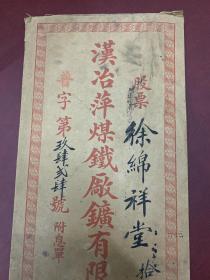 股票
徐綿祥堂
拾
漢冶萍煤鐵廠鑛有限
普字第玖肆貳肆號
附息單